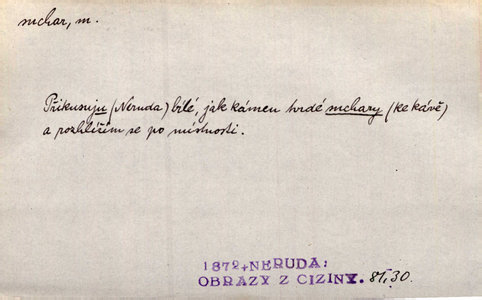 suchar, m.
Přikusuju (Neruda) bílé, jak kámen tvrdé suchary (ke kávě)
a rozhlížím se po místnosti.
1872, NERUDA:
OBRAZY Z CIZINY. 81, 30.